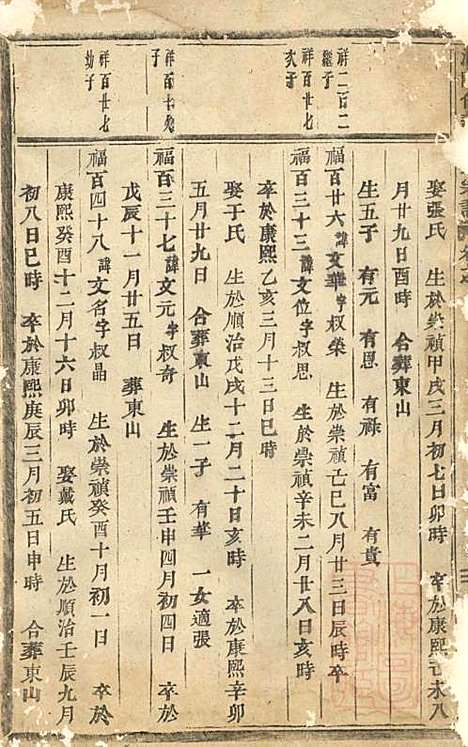 祥二百二
繼子
祥百廿七
次子
祥百十九
子
祥百廿七
幼子
娶張氏 生於崇禎甲戌三月初七日卯時 卒於康熙己未八
月廿九日酉時 合葬東山
生五子 有元 有恩 有祿 有富 有貴
福百廿六諱文華字叔榮 生於崇禎己巳八月廿三日辰時卒
福百三十三諱文位字叔思 生於崇禎辛未二月廿八日亥時
卒於康熙乙亥三月十三日巳時
娶于氏 生於順治戊戌十二月二十日亥時 卒於康熙辛卯
五月廿九日 合葬東山 生一子 有華 一女適張
福百三十七諱文元字叔奇 生於崇禎壬申四月初四日 卒於
戊辰十一月廿五日 葬東山
福百四十八諱文名字叔晶 生於崇禎癸酉十月初一日 卒於
康熙癸酉十二月十六日卯時 娶戴氏 生於順治壬辰九月
初八日巳時 卒於康熙庚辰三月初五日申時 合葬東山